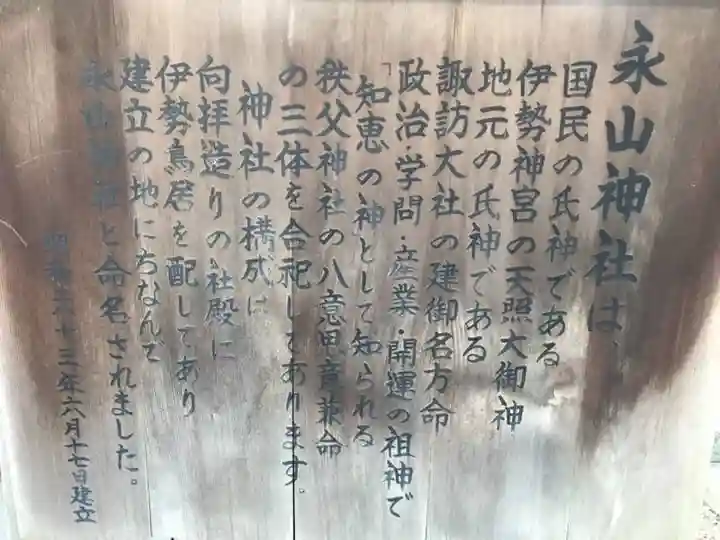 永山神社は、
国民の氏神である
伊勢神宮の天照大御神
地元の氏神である
諏訪大社の建御名方命
政治・学問・産業・開運の祖神で
「知恵の神」として知られる
秩父神社の八意思兼命
の三体を合祀してあります。
神社の構成は
向拝造りの社殿に
伊勢鳥居を配してあり
建立の地にちなんで
永山神社と命名されました。
昭和六十三年六月十七日建立